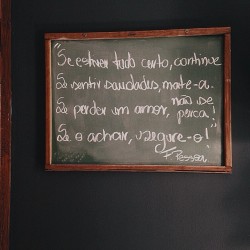 "Se estiver tudo certo, continue
Se sentir saudades, mate-a.
Se perder um amor, não se perca!
Se o achar, segure-o!"
F. Pessoa